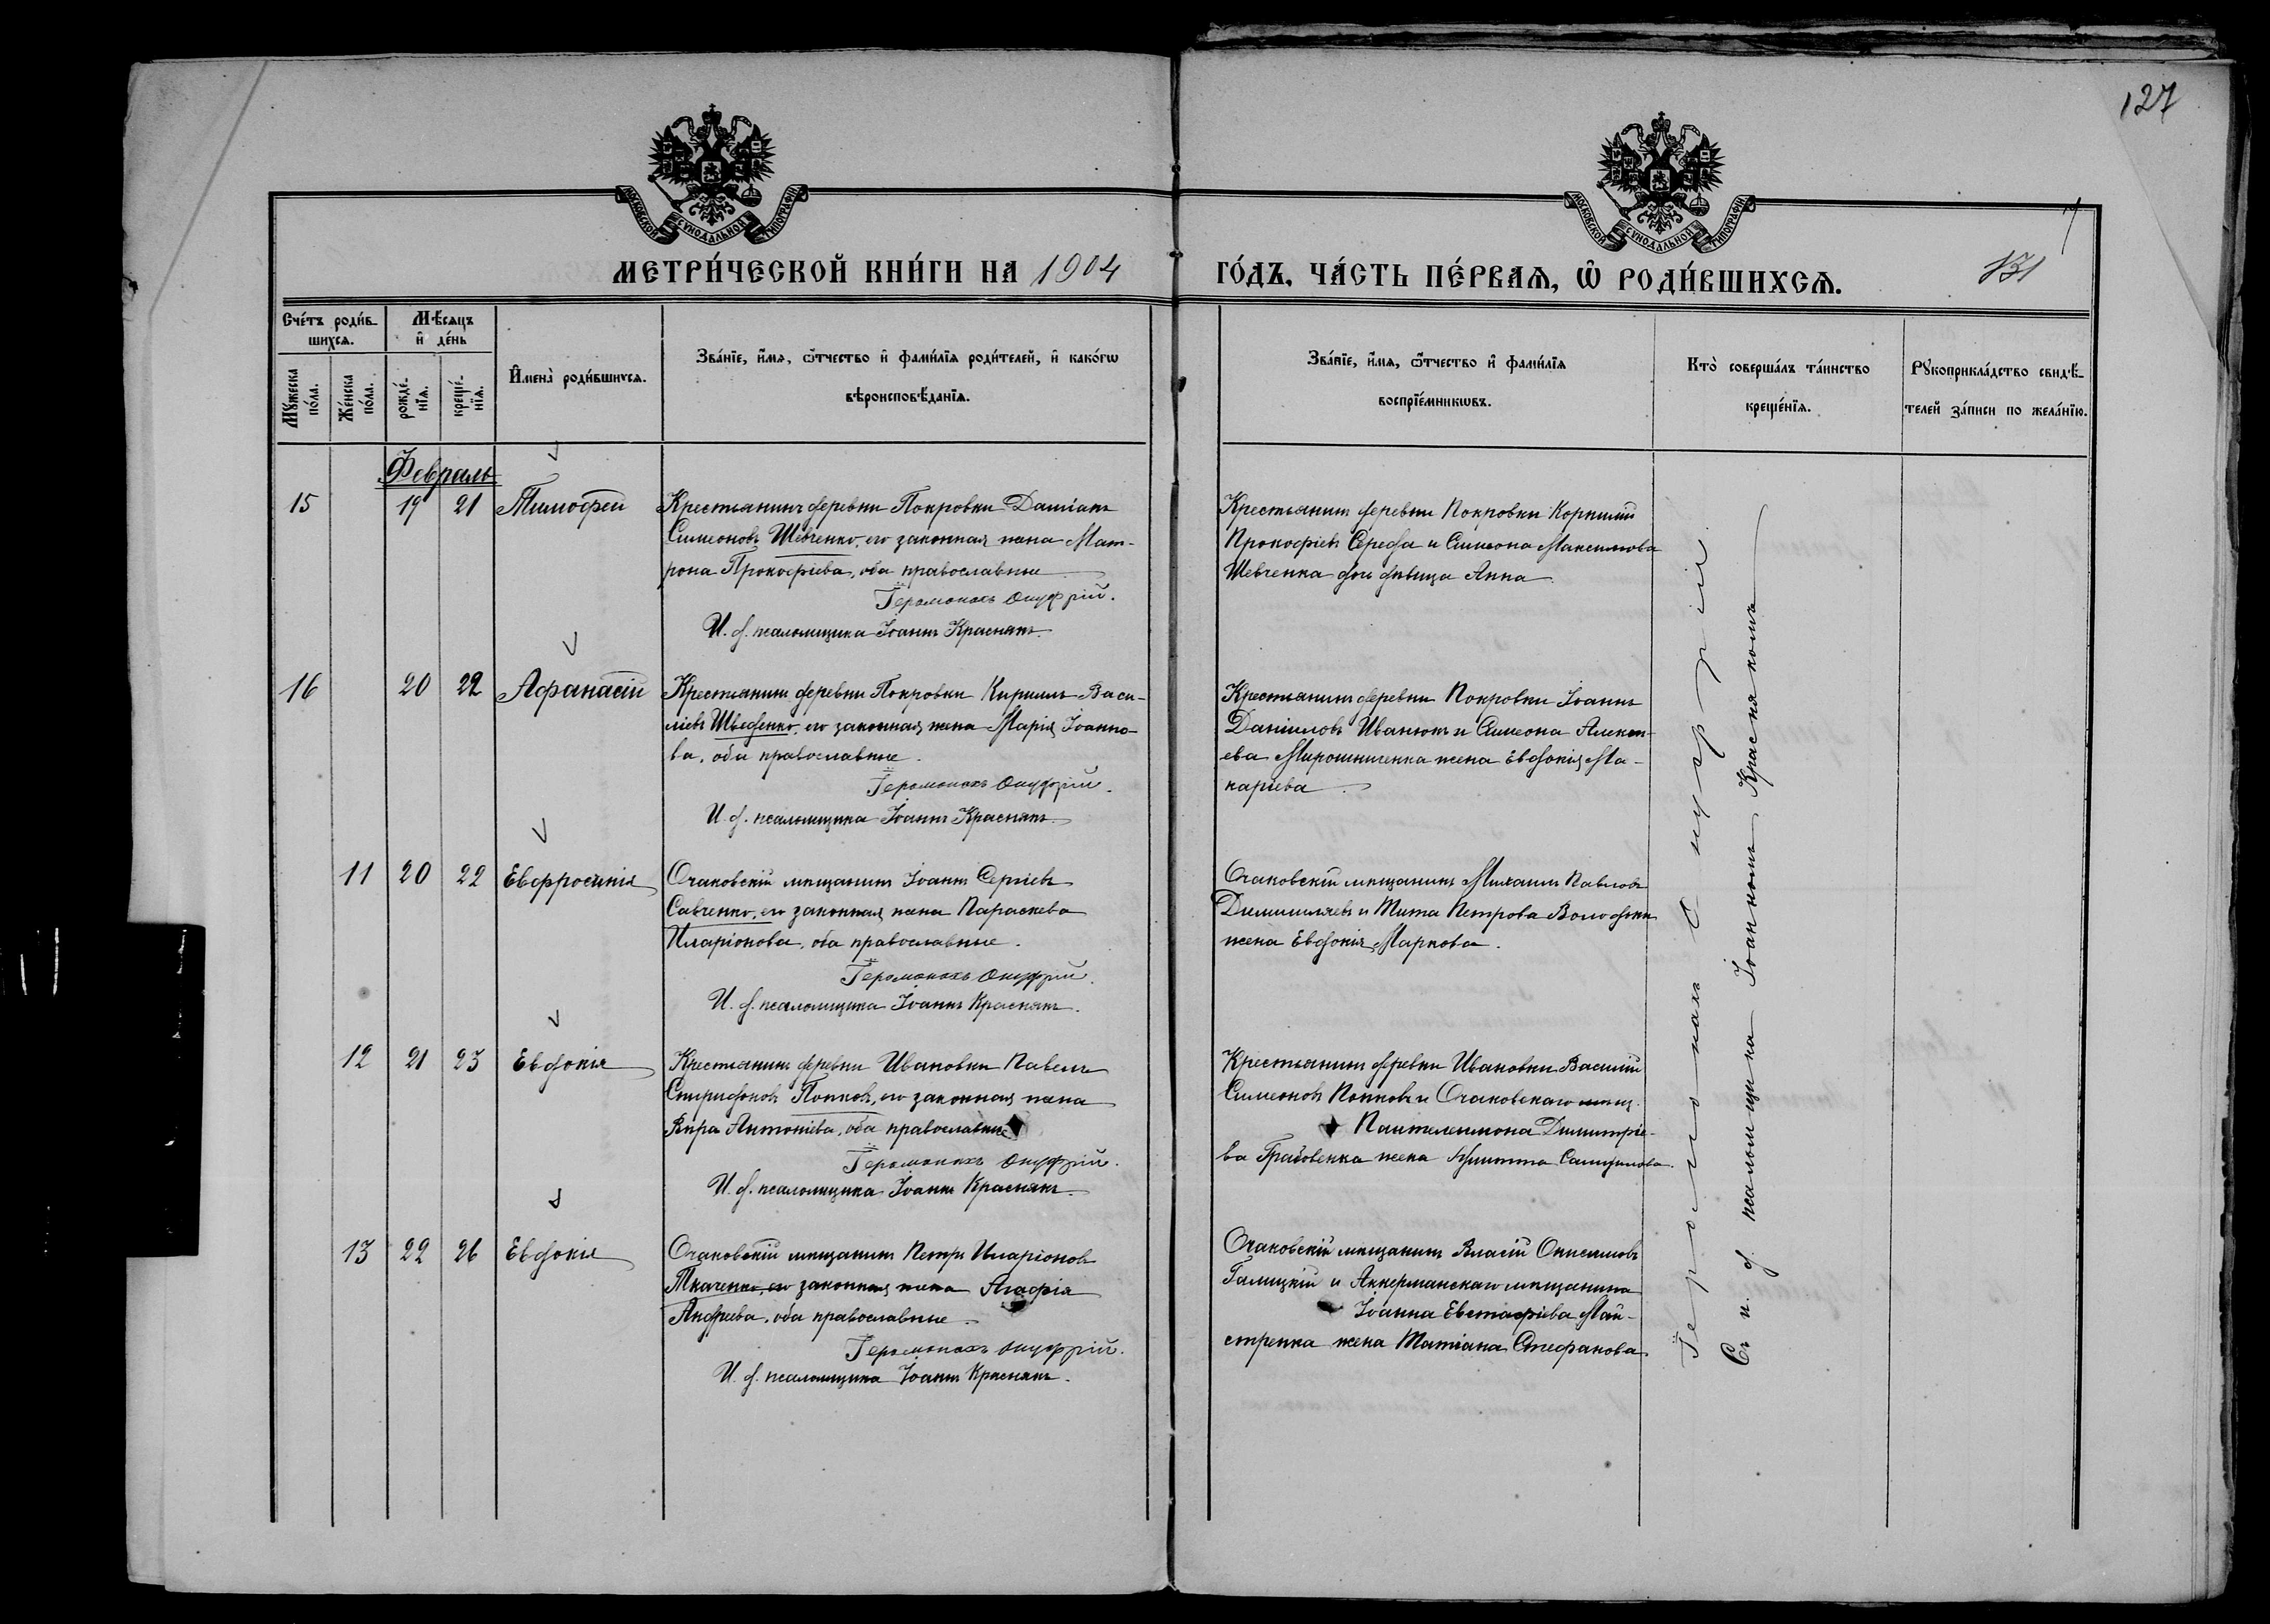 127
МОСКОВСКОЙ СУНОДАЛЬНОЙ ТИПОГРАФІИ
МОСКОВСКОЙ СУНОДАЛЬНОЙ ТИПОГРАФІИ
МЕТРИ́ЧЕСКОЙ КНИ́ГИ НА 1904
ГО́ДЪ, ЧА́СТЬ ПЕ́РВАѦ, Ѡ҆ РОДИ́ВШИХСѦ.
131
Сче́тъ роди́в-
шихсѧ.
Мѣ́сѧцъ
и҆ де́нь
Мꙋ́жеска по́ла.
Же́нска по́ла.
рожде́-
нїѧ.
креще́-
нїѧ.
И҆мена̀ роди́вшихсѧ.
Зва́нїе, и҆́мѧ, ѻ҆́тчество и҆ фами́лїѧ роди́телей, и҆ како́гѡ
вѣроисповѣ́данїѧ.
Зва́нїе, и҆́мѧ, ѻ҆́тчество и҆ фами́лїѧ
воспрїе́мникѡвъ.
Кто̀ соверша́лъ та́инство
креще́нїѧ.
Рꙋкоприкла́дство свидѣ́-
телей за́писи по жела́нїю.
Февраль
15 19 21 Тимофей
Крестьянинъ деревни Покровки Даміанъ
Симеоновъ Шевченко, его законная жена Мат-
рона Прокофіева, оба православные
Іеромонахъ Онуфрій.
И. д. псаломщика Іоаннъ Краснякъ.
Крестьянинъ деревни Покровки Корнилій
Прокофіевъ Середа и Симеона Максимова
Шевченка дочь дѣвица Анна.
16 20 22 Афанасій
Крестьянинъ деревни Покровки Кириллъ Васи-
ліевъ Шведенко, его законная жена Марія Іоанно-
ва, оба православные.
Іеромонахъ Онуфрій.
И. д. псаломщика Іоаннъ Краснякъ.
Крестьянинъ деревни Покровки Іоаннъ
Даніиловъ Иванюкъ и Симеона Алексі-
ева Мирошниченка жена Евдокія Ма-
каріева.
11 20 22 Евфросинія
Очаковскій мѣщанинъ Іоаннъ Сергіевъ
Савченко, его законная жена Параскева
Иларіонова, оба православные.
Іеромонахъ Онуфрій.
И. д. псаломщика Іоаннъ Краснякъ.
Очаковскій мѣщанинъ Михаилъ Павловъ
и Тита Петрова
жена Евдокія Маркова.
12 21 23 Евдокія
Крестьянинъ деревни Ивановки Павелъ
Спиридоновъ Попковъ, его законная жена
Вѣра Антоніева, оба православные
Іеромонахъ Онуфрій.
И. д. псаломщика Іоаннъ Краснякъ.
Крестьянинъ деревни Ивановки Василій
Симеоновъ Попковъ и Очаковскаго мѣщ.
Пантелеимона Димитріе-
ва жена Самуилова.
13 22 26 Евдокія
Очаковскій мѣщанинъ Петръ Иларіоновъ
Ткаченко, его законная жена Агафія
Андреева, оба православные.
Іеромонахъ Онуфрій.
И. д. псаломщика Іоаннъ Краснякъ.
Очаковскій мѣщанинъ Власій Онисимовъ
Галицкій и Аккерманскаго мѣщанина
Іоанна Евстафіева Май-
стренка жена Татіана Стефанова
Іеромонахъ Онуфрій
Съ и. д. псаломщика Іоанномъ Краснякомъ